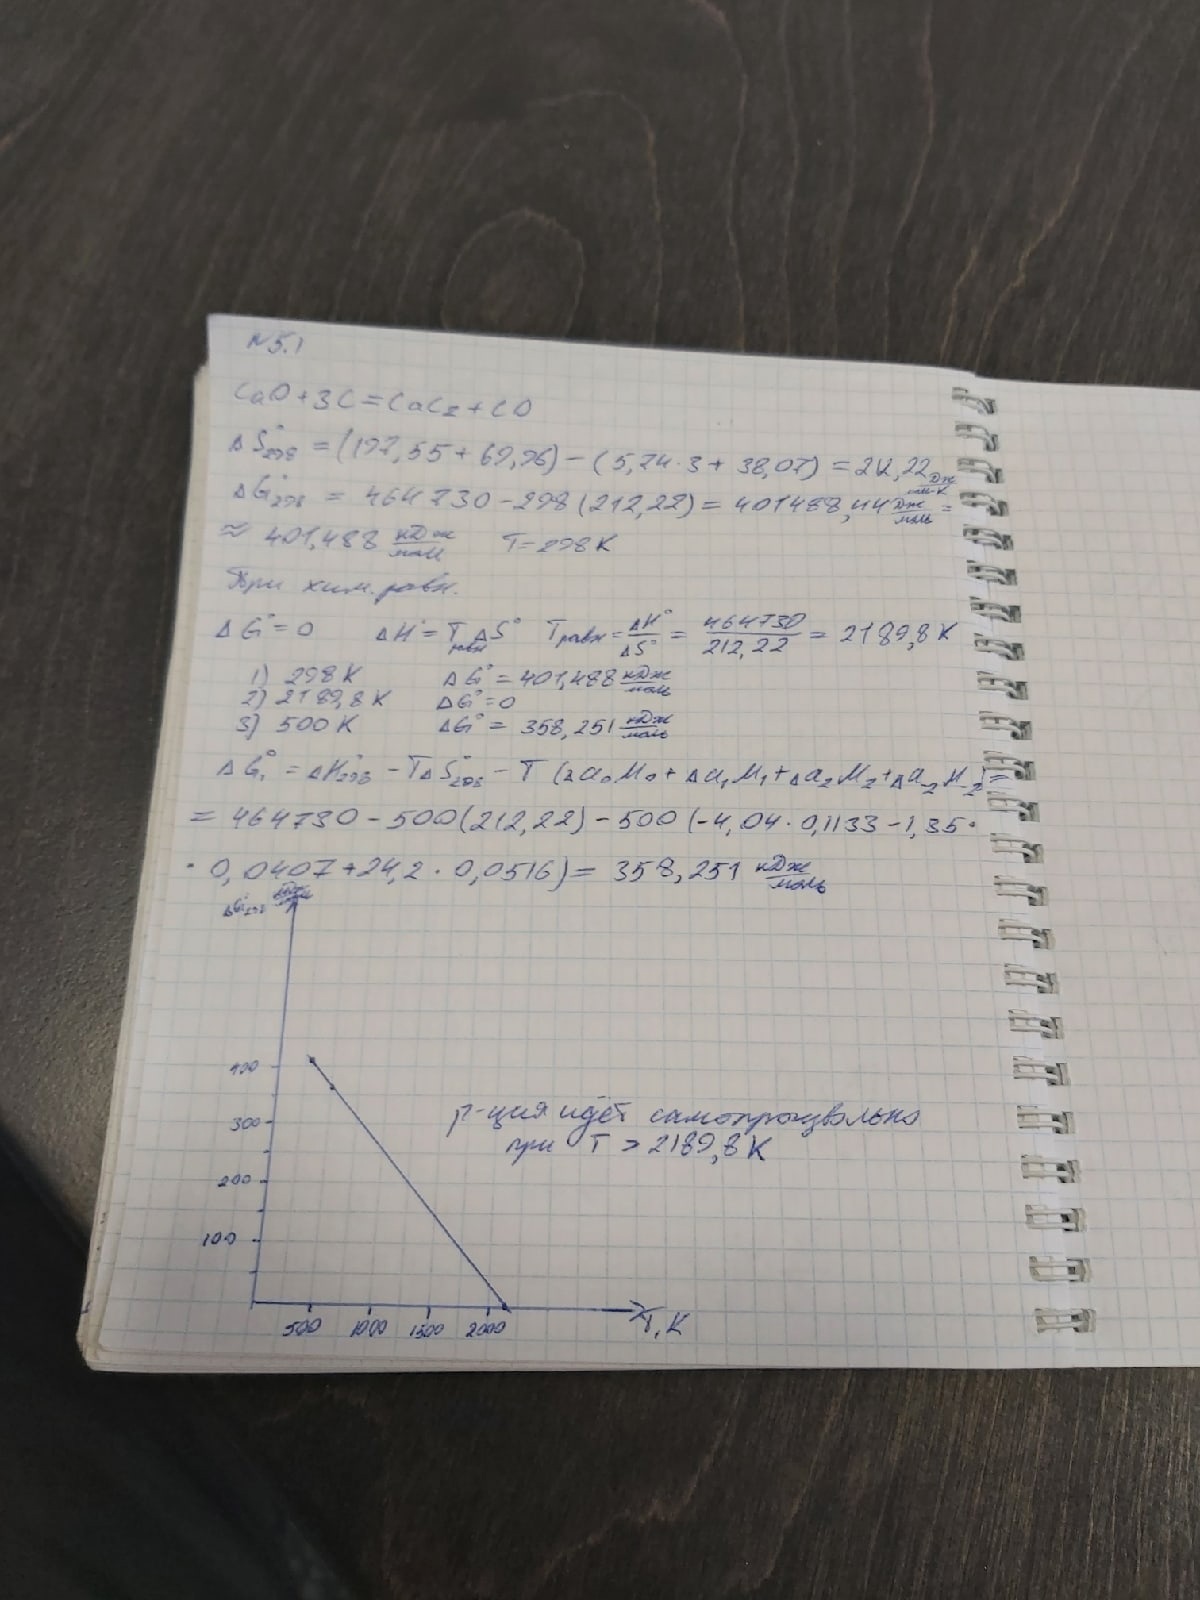 N5.1
CaO+3C=CaC₂+CO
ΔS°₂₉₈ = (197,55+69,96)-(5,74·3+38,07)=212,22 Дж/моль·К
ΔG°₂₉₈ = 464730-298(212,22)=401488,44 Дж/моль =
≈ 401,488 кДж/моль T=298K
При хим. равн.
ΔG°=0 ΔH°=T равн ΔS° T равн = ΔH°/ΔS° = 464730/212,22 = 2189,8 K
1) 298K ΔG°=401,488 кДж/моль
2) 2189,8 K ΔG°=0
3) 500 K ΔG°= 358,251 кДж/моль
ΔG°ₜ = ΔH°₂₉₈ -TΔS°₂₉₈ - T (Δa₀M₀+Δa₁M₁+Δa₂M₂+Δa₋₂M₋₂)=
= 464730-500(212,22)-500 (-4,04·0,1133-1,35·
·0,0407+24,2·0,0516)= 358,251 кДж/моль
ΔG°₂₉₈ кДж/моль
400
300
200
100
500 1000 1500 2000 T, K
р-ция идёт самопроизвольно
при T > 2189,8 K